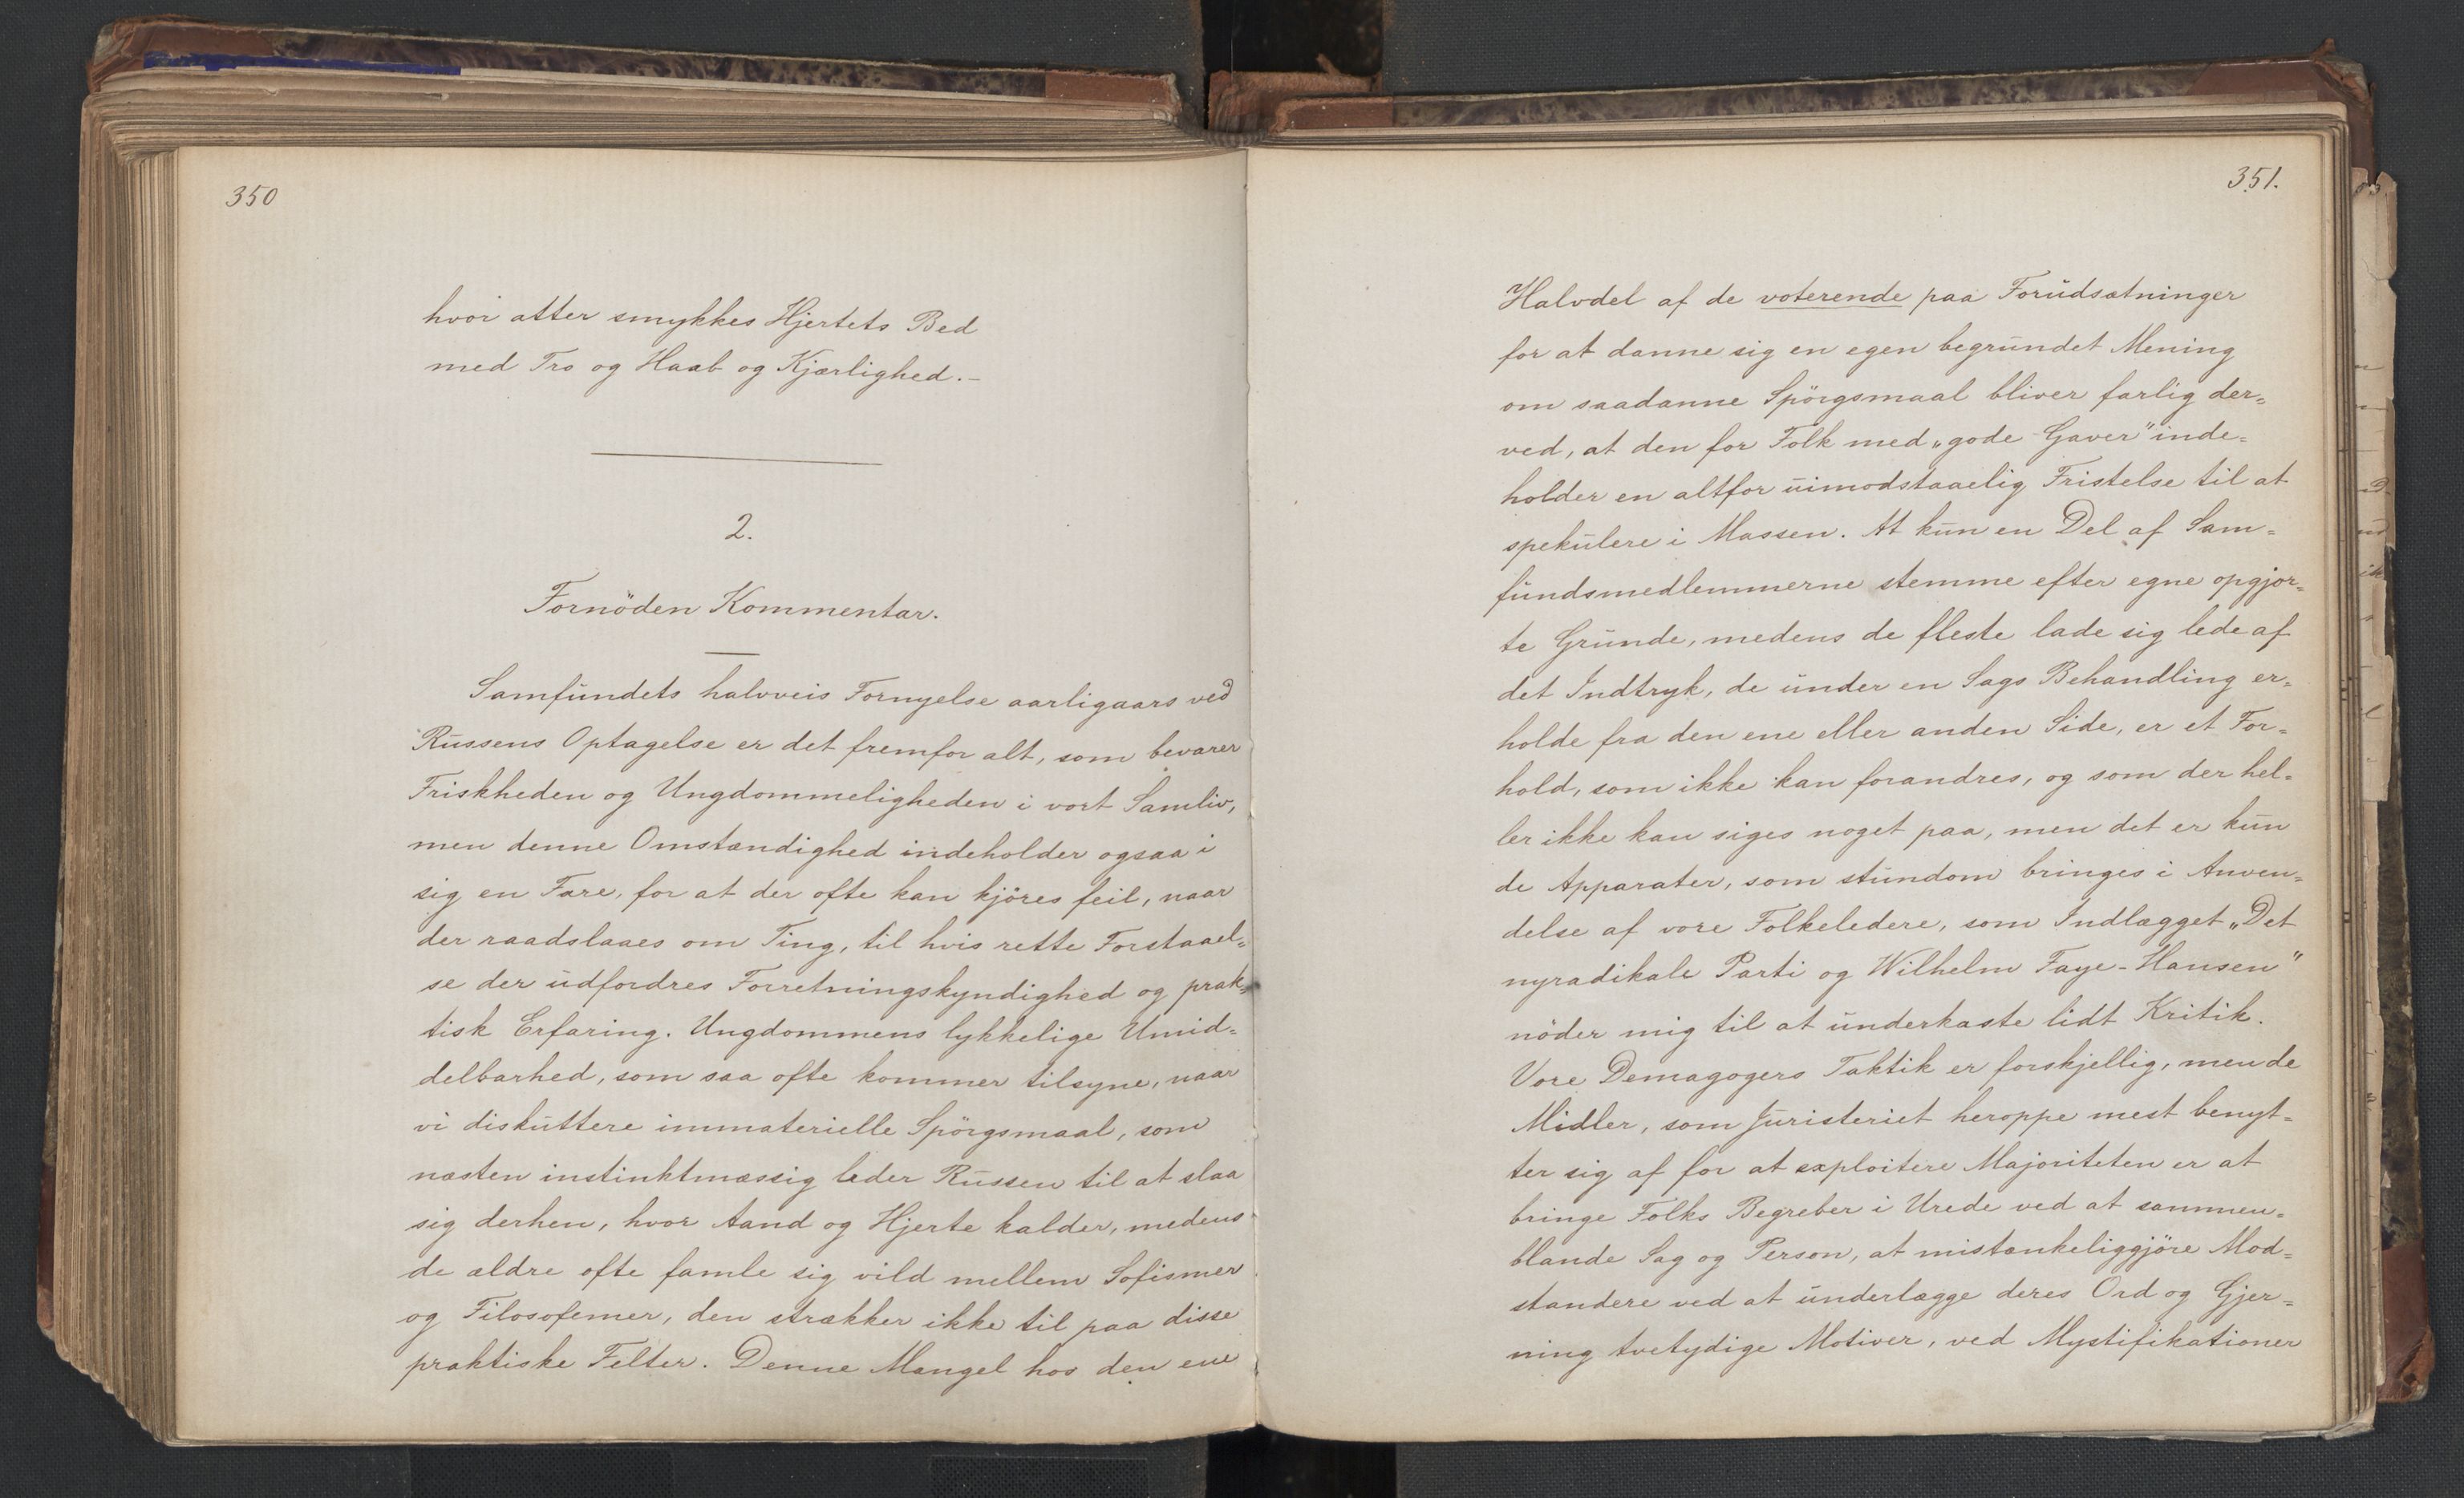 350
hvor atter smykkes Hjertets Bed
med Tro og Haab og Kjærlighed.-
2.
Fornöden Kommentar.
Samfundets halvveis Fornyelse aarligaars ved
Russens Optagelse er det fremfor alt, som bevarer
Friskheden og Ungdommeligheden i vort Samliv,
men denne Omstændighed indeholder ogsaa i
sig en Fare, for at der ofte kan kjöres feil, naar
der raadslaaes om Ting, til hvis rette Forstaael=
se der udfordres Forretningskyndighed og prak=
tisk Erfaring. Ungdommens lykkelige Umid=
delbarhed, som saa ofte kommer tilsyne, naar
vi diskuttere immaterielle Spörgsmaal, som
næsten instinktmæssig leder Russen til at slaa
sig derhen, hvor Aand og Hjerte kalder, medens
de ældre ofte famle sig vild mellem Sofismer
og Filosofemer, den strækker ikke til paa disse
praktiske Felter. Denne Mangel hos den ene
351.
Halvdel af de voterende paa Forudsætninger
for at danne sig en egen begrundet Mening
om saadanne Spörgsmaal bliver farlig der=
ved, at den for Folk med „gode Gaver" inde=
holder en altfor uimodstaaelig Fristelse til at
spekulere i Massen. At kun en Del af Sam=
fundsmedlemmerne stemme efter egne opgjor=
te Grunde, medens de fleste lade sig lede af
det Indtryk, de under en Sags Behandling er=
holde fra den ene eller anden Side, er et For=
hold, som ikke kan forandres, og som der hel=
ler ikke kan siges noget paa, men det er kun
de Apparater, som stundom bringes i Anven=
delse af vore Folkeledere, som Indlægget „Det
nyradikale Parti og Wilhelm Faye-Hansen"
nöder mig til at underkaste lidt Kritik.
Vore Demagogers Taktik er forskjellig, men de
Midler, som Juristeriet heroppe mest benyt=
ter sig af for at exploitere Majoriteten er at
bringe Folks Begreber i Urede ved at sammen=
blande Sag og Person, at mistænkeliggjöre Mod=
standere ved at underlægge deres Ord og Gjer=
ning tvetydige Motiver, ved Mystifikationer